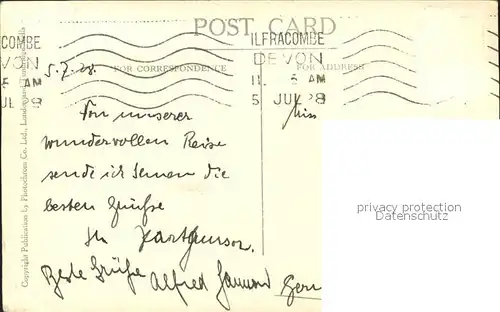 POST CARD
COMBE
VON
5 AM
UL 28
ILFRACOMBE
DEVON
5 AM
5 JUL 28
5.7.28.
FOR CORRESPONDENCE
FOR ADDRESS
Miss
Von unserer
wundervollen Reise
sende ich Ihnen die
besten Grüsse
Ihr
Beste Grüße Alfred
privacy protection
Datenschutz
Copyright Publication by Photochrom Co. Ltd., London and